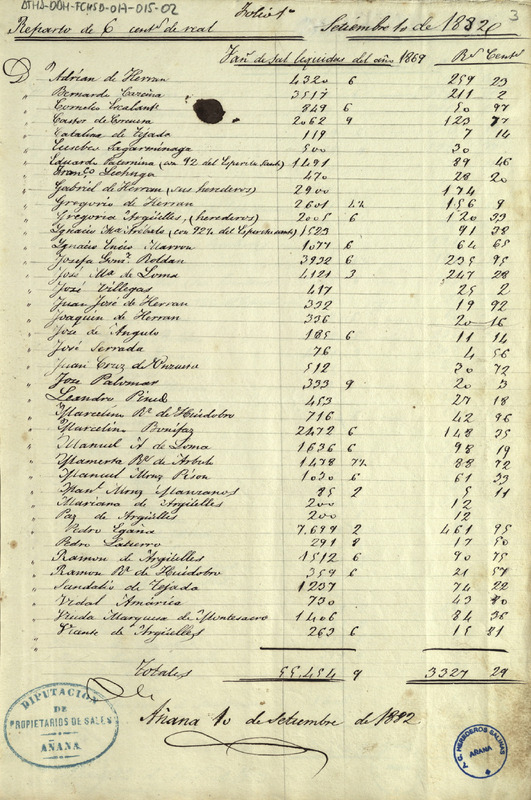 ATHA-DDH-FCHSD-014-015-02
3
Folio 1º
Reparto de 6 centˢ de real Setiembre 10 de 1882
Fanˢ de sal liquidas del año 1869 Rˢ Centˢ
Dⁿ Adrian de Herran 4320 6 259 23
" Bernardo Corcina 3517 211 2
" Cornelio Escalante 849 6 50 97
" Castor de Corcuera 2062 9 123 77
" Catalina de Tejada 119 7 14
" Eusebio Sagarminaga 500 30
" Eduardo Paternina (con 92 del Espiritu Santo) 1491 89 46
" Franᶜᵒ Lechuga 470 28 20
" Gabriel de Herran (sus herederos) 2900 174
" Gregorio de Herran 2601 156 9
" Gregorio Argüelles, (herederos) 2005 6 120 33
" Ignacio Mª Arévalo (con 92½ del Espiritu Santo) 1523 91 38
" Ignacio Encio Marron 1077 6 64 65
" Josefa Gonᶻ Roldan 3932 6 235 95
" José Mª de Loma 4121 3 247 28
" José Villegas 417 25 2
" Juan José de Herran 332 19 92
" Joaquin de Herran 336 20 16
" José de Angulo 185 6 11 14
" José Serrada 76 4 56
" Juan Cruz de Onzueta 512 30 72
" José Palomar 333 9 20 3
" Leandro Pinedo 453 27 18
" Marcelina Rᶻ de Huidobro 716 42 96
" Marcelino Bonifaz 2472 6 148 35
" Manuel A. de Loma 1636 6 98 19
" Mamerta Rᶻ de Arbulo 1478 7½ 88 72
" Manuel Mrnz Pison 1030 6 61 83
" Manˡ Mrnz Manzanos 85 2 5 11
" Mariana de Argüelles 200 12
" Paz de Argüelles 200 12
" Pedro Egaña 7.699 2 461 95
" Pedro Latierro 291 8 17 50
" Ramon de Argüelles 1512 6 90 75
" Ramon Rᶻ de Huidobro 359 6 21 57
" Sandalio de Tejada 1237 74 22
" Vidal Amárica 730 43 80
" Viuda Marquesa de Montesacro 1406 84 36
" Vicente de Argüelles 263 6 15 81
Totales 55,454 9 3327 29
Añana 10 de Setiembre de 1882.
DIPUTACION
DE
PROPIETARIOS DE SALES
AÑANA.
A.C. HEREDEROS SALINAS
AÑANA